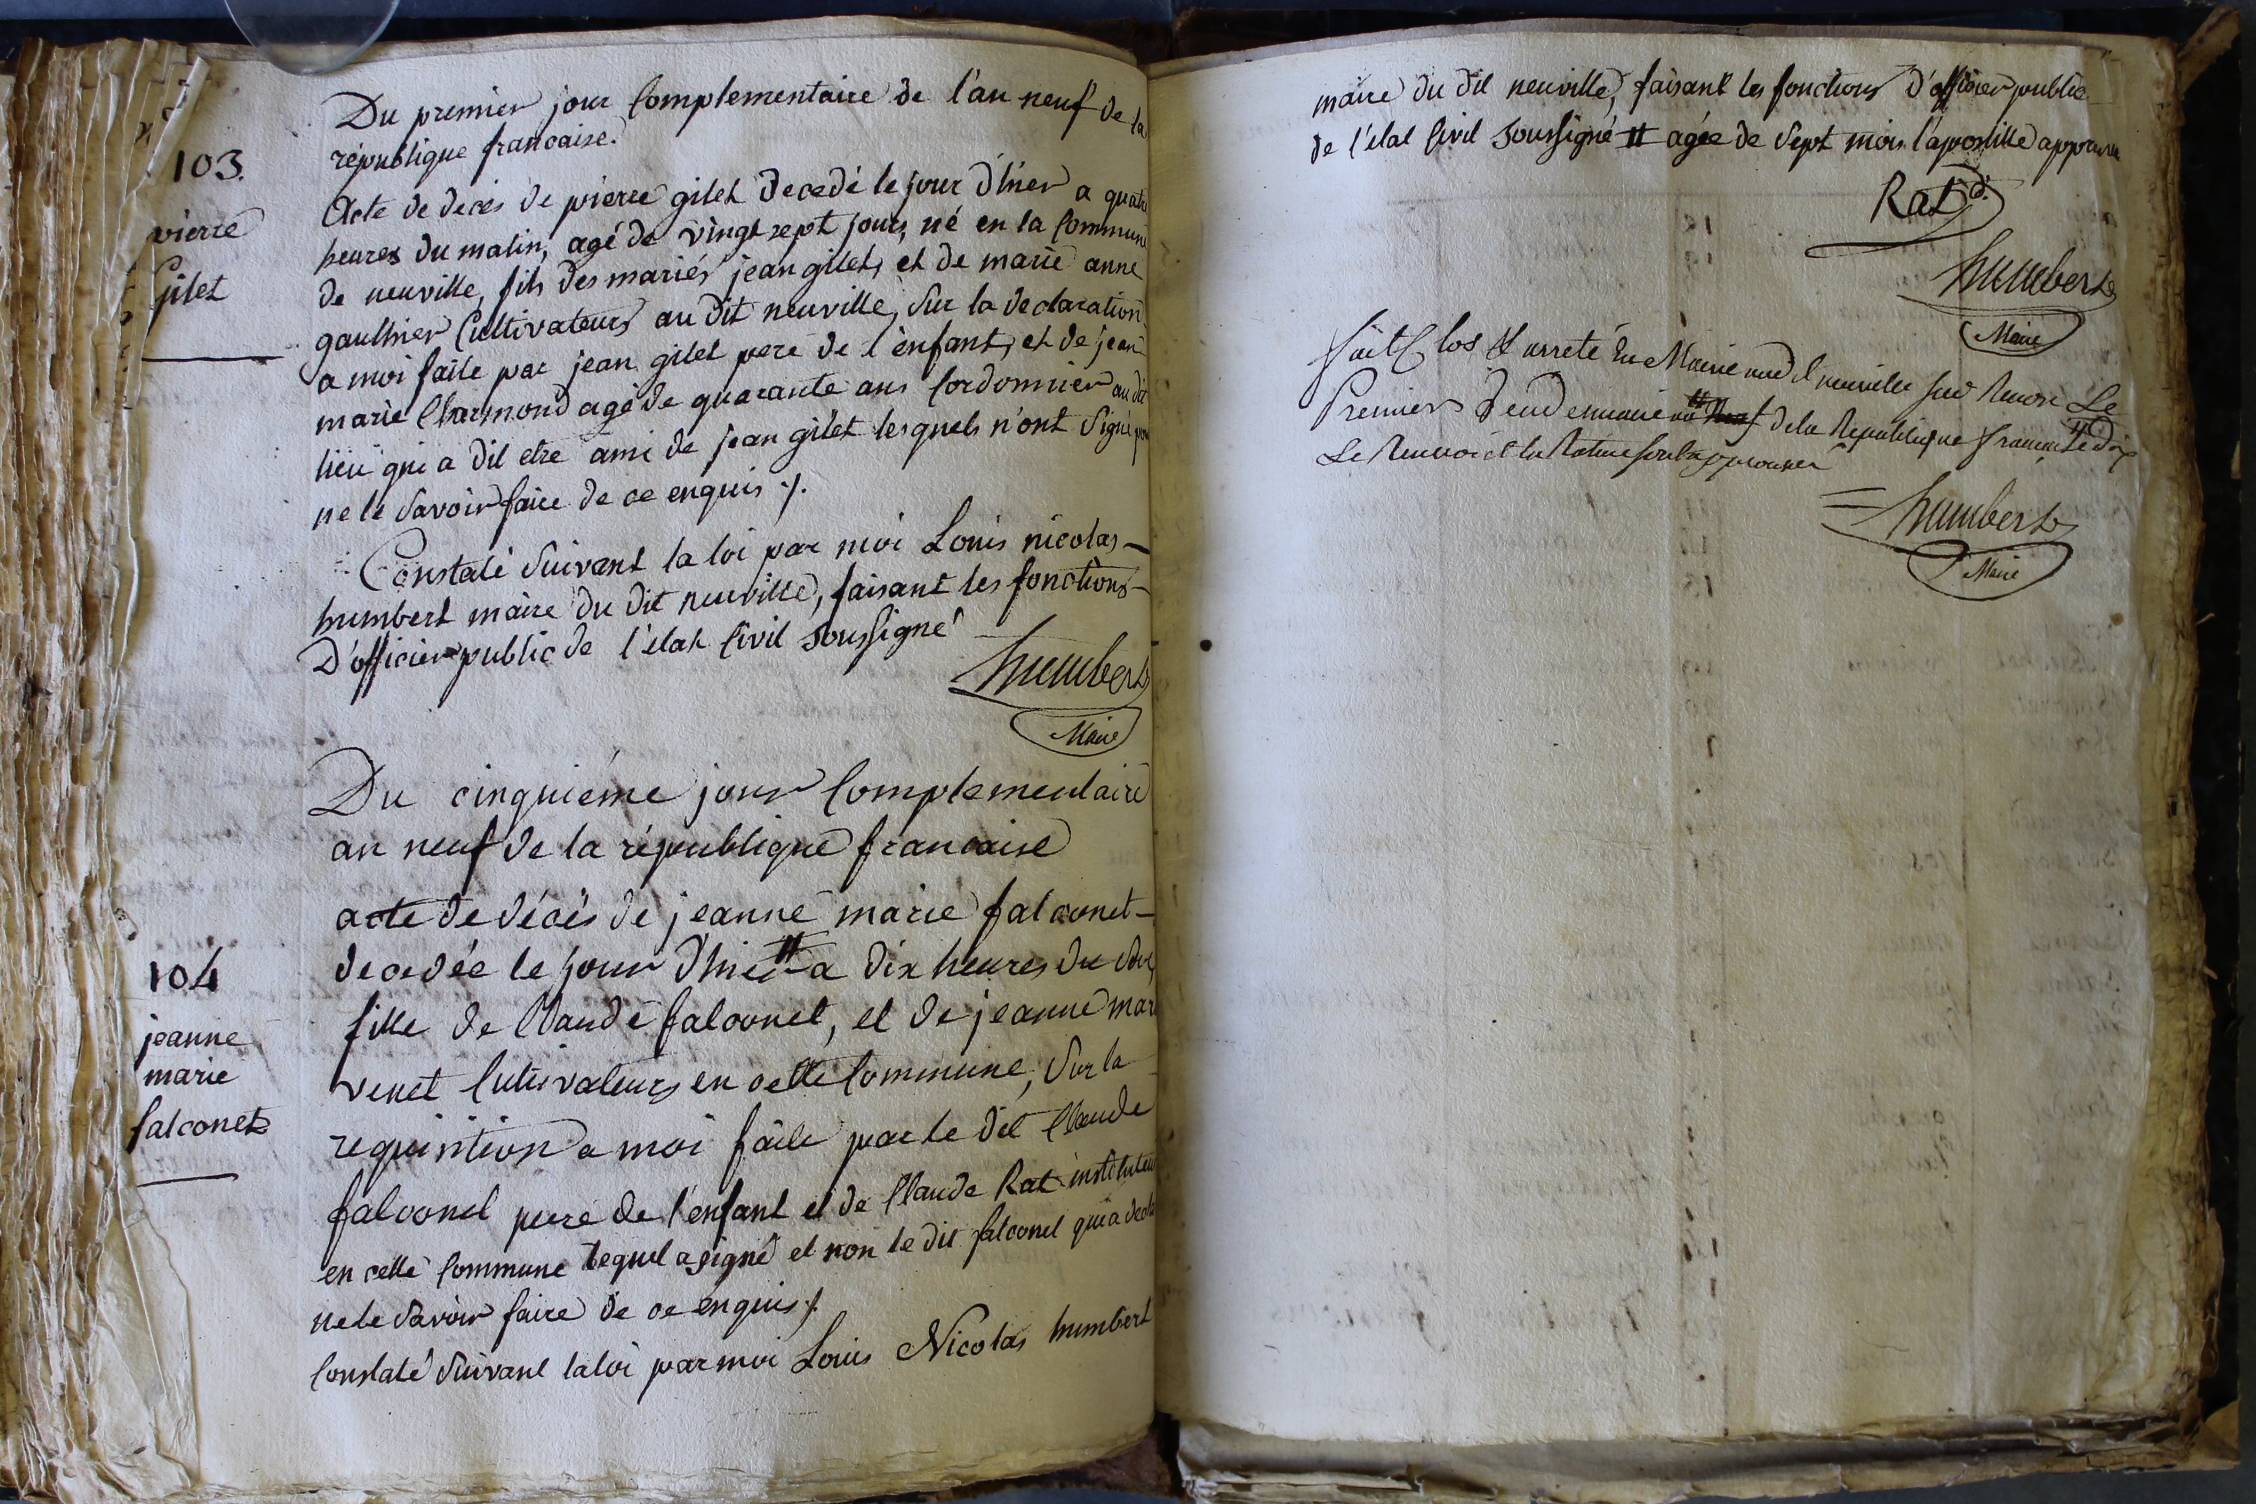 103.
pierre
Gilet
Du premier jour Complementaire de l'an neuf de la
république francaise.
Acte de deces de pierre gilet Decedé le jour d'hier a quatre
heures du matin, agé de vingt sept jours, né en la Commune
de neuville, fils des mariés jean gilet, et de marie anne
gauthier Cultivateurs au dit neuville, sur la declaration
a moi faite par jean gilet pere de l'enfant, et de jean
marie Charmond agé de quarante ans Cordonnier au dit
lieu qui a dit etre ami de jean gilet lesquels n'ont signé pour
ne le savoir faire de ce enquis ./.
Constaté suivant la loi par moi Louis nicolas
humbert maire du dit neuville, faisant les fonctions
D'officier public de l'etat Civil soussigné
humbert
Maire
104
jeanne
marie
falconet
Du cinquiéme jour Complementaire
an neuf de la république francaise
acte de décès de jeanne marie falconet
decedée le jour d'hier # a dix heures du soir,
fille de Claude falconet, et de jeanne marie
venet Cutivateurs en cette Commune, sur la
requisition a moi faite par le dit Claude
falconet pere de l'enfant et de Claude Rat instituteur
en cette Commune lequel a signé et non le dit falconet qui a declaré
ne le savoir faire de ce enquis ./.
Constaté suivant la loi par moi Louis Nicolas humbert
maire du dit neuville, faisant les fonctions d'officier public
de l'etat Civil soussigné # agée de sept mois l'apostille approuvée
Rat
humbert
Maire
fait Clos & arreté En Mairie de neuville sur Renon Le
Premier Vendemiaire an # neuf de la Republique francaise # dix
Le Renvoi et la Rature sont approuver
humbert
Maire